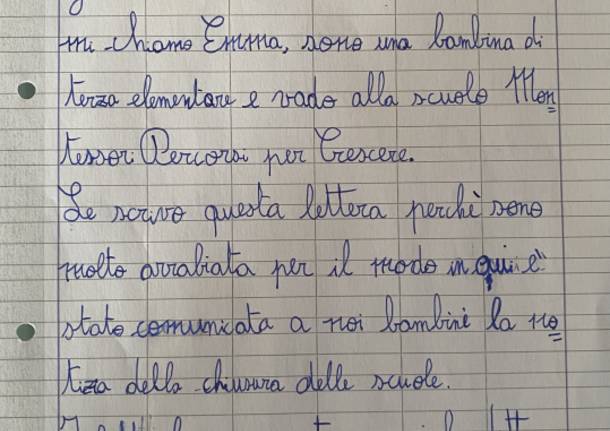 mi chiamo Emma, sono una bambina di
terza elementare e vado alla scuola Mon
tessori Percorsi per Crescere.
Le scrivo questa lettera perchè sono
molto arrabiata per il modo in qui è
stato comunicata a noi bambini la no
tizia della chiusura delle scuole.